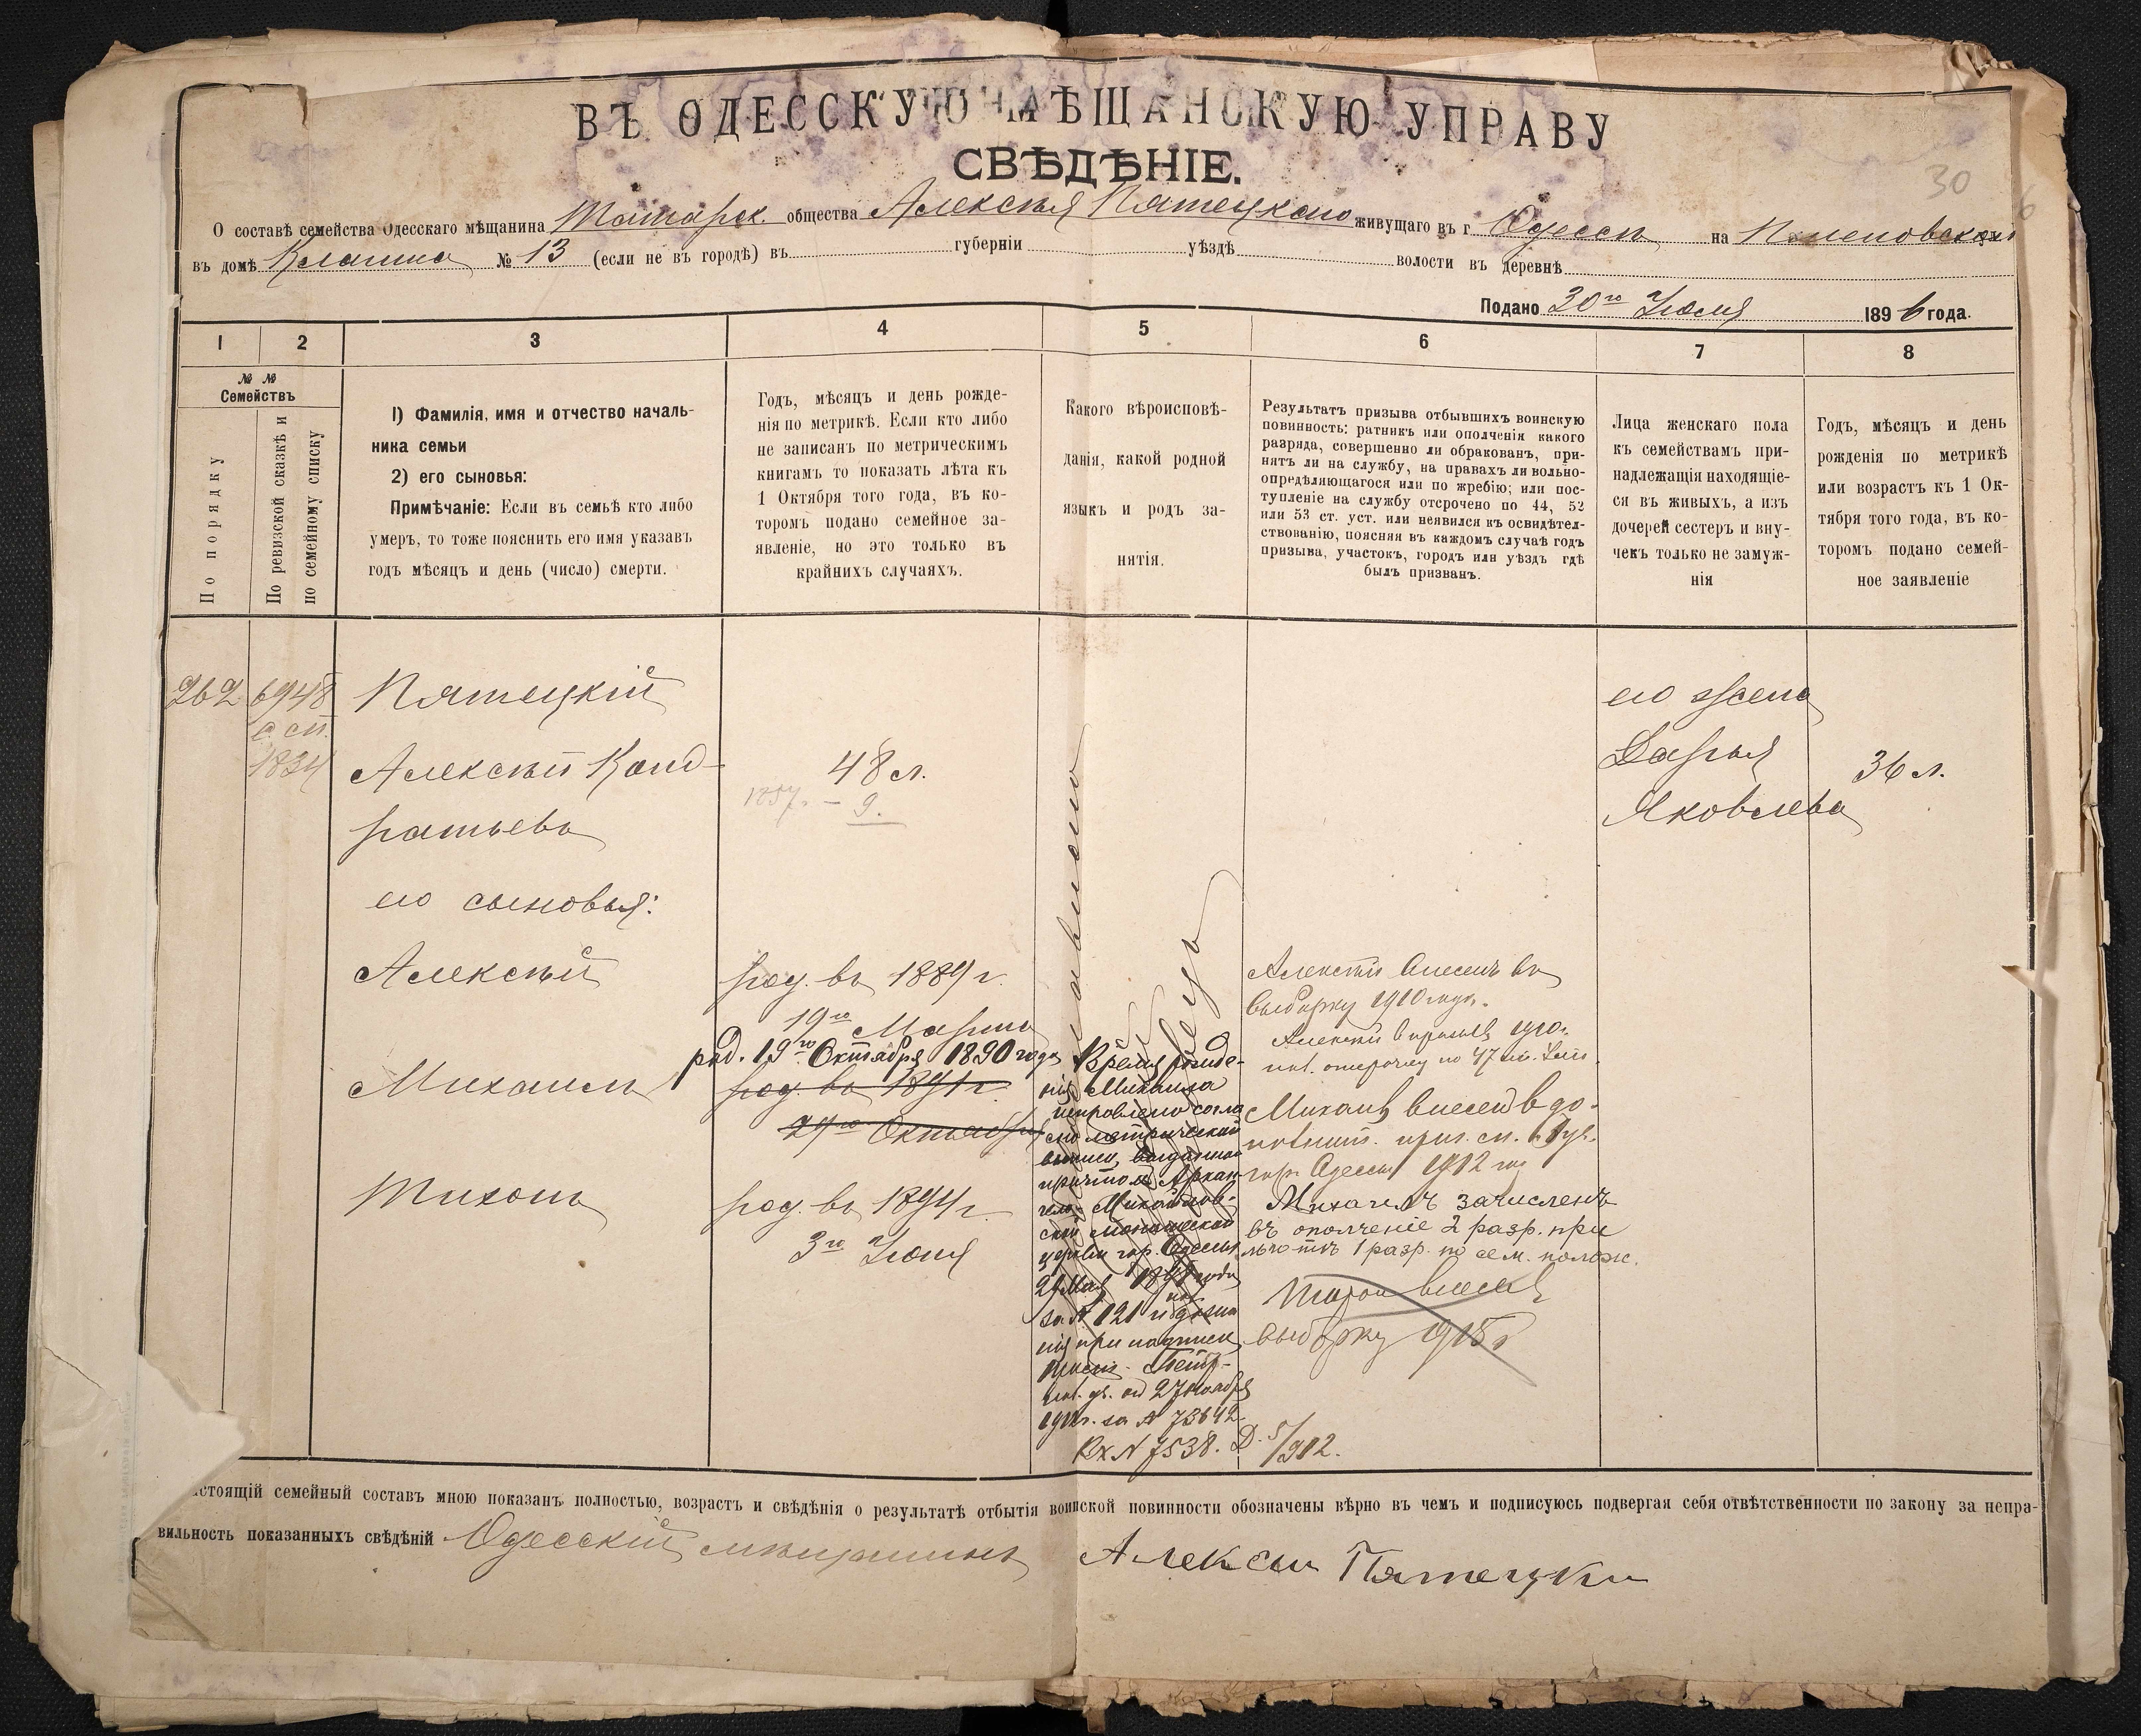 ВЪ ОДЕССКУЮ МѢЩАНСКУЮ УПРАВУ
СВѢДѢНІЕ.
30
О составѣ семейства Одесскаго мѣщанина общества Алексѣя Пятецкаго живущаго въ г. Одессѣ на
въ домѣ № 13 (если не въ городѣ) въ губерніи уѣздѣ волости въ деревнѣ
Подано 30го Іюля 1896 года.
1 2 3 4 5 6 7 8
№ №
Семействъ
По порядку
По ревизской сказкѣ и
по семейному списку
1) Фамилія, имя и отчество началь-
ника семьи
2) его сыновья:
Примѣчаніе: Если въ семьѣ кто либо
умеръ, то тоже пояснить его имя указавъ
годъ мѣсяцъ и день (число) смерти.
Годъ, мѣсяцъ и день рожде-
нія по метрикѣ. Если кто либо
не записанъ по метрическимъ
книгамъ то показать лѣта къ
1 Октября того года, въ ко-
торомъ подано семейное за-
явленіе, но это только въ
крайнихъ случаяхъ.
Какого вѣроисповѣ-
данія, какой родной
языкъ и родъ за-
нятія.
Результатъ призыва отбывшихъ воинскую
повинность: ратникъ или ополченія какого
разряда, совершенно ли обракованъ, при-
нятъ ли на службу, на правахъ ли вольно-
опредѣляющагося или по жребію; или пос-
тупленіе на службу отсрочено по 44, 52
или 53 ст. уст. или неявился къ освидѣтел-
ствованію, поясняя въ каждомъ случаѣ годъ
призыва, участокъ, городъ или уѣздъ гдѣ
былъ призванъ.
Лица женскаго пола
къ семействамъ при-
надлежащія находящіе-
ся въ живыхъ, а изъ
дочерей сестеръ и вну-
чекъ только не замуж-
нія
Годъ, мѣсяцъ и день
рожденія по метрикѣ
или возрастъ къ 1 Ок-
тября того года, въ ко-
торомъ подано семей-
ное заявленіе
262 6948
с. сп.
1834
Пятецкій
Алексѣй Конд-
ратьевъ
48 л.
его жена
Дарья
Яковлева
36 л.
его сыновья:
Алексѣй
род. въ 1889 г.
19го Марта
Алексѣй внесенъ въ
выборку 1910 года.
Михаилъ
род. 19го Октября 1890 года
род. въ 1891 г.
29го Октября
Тихонъ
род. въ 1894 г.
3го Іюня
Время рожде-
нія Михаила
исправлено согла
сно метрической
выписи, выданной
причтомъ Архан-
гело-Михайлов-
ской монашеской
церкви гор. Одессы
за № 121
за № 73642
Вх № 7538. Д. 5/912.
Михаилъ внесенъ въ до-
гор. Одессы 1912 год
Михаилъ зачисленъ
въ ополченіе 2 разр. при
льготѣ 1 разр. по сем. полож.
Тихон внесенъ
выборку 1915 г
астоящій семейный составъ мною показанъ полностью, возрастъ и свѣдѣнія о результатѣ отбытія воинской повинности обозначены вѣрно въ чемъ и подписуюсь подвергая себя отвѣтственности по закону за непра-
вильность показанныхъ свѣдѣній Одесскій мѣщанинъ Алексѣи Пятецки